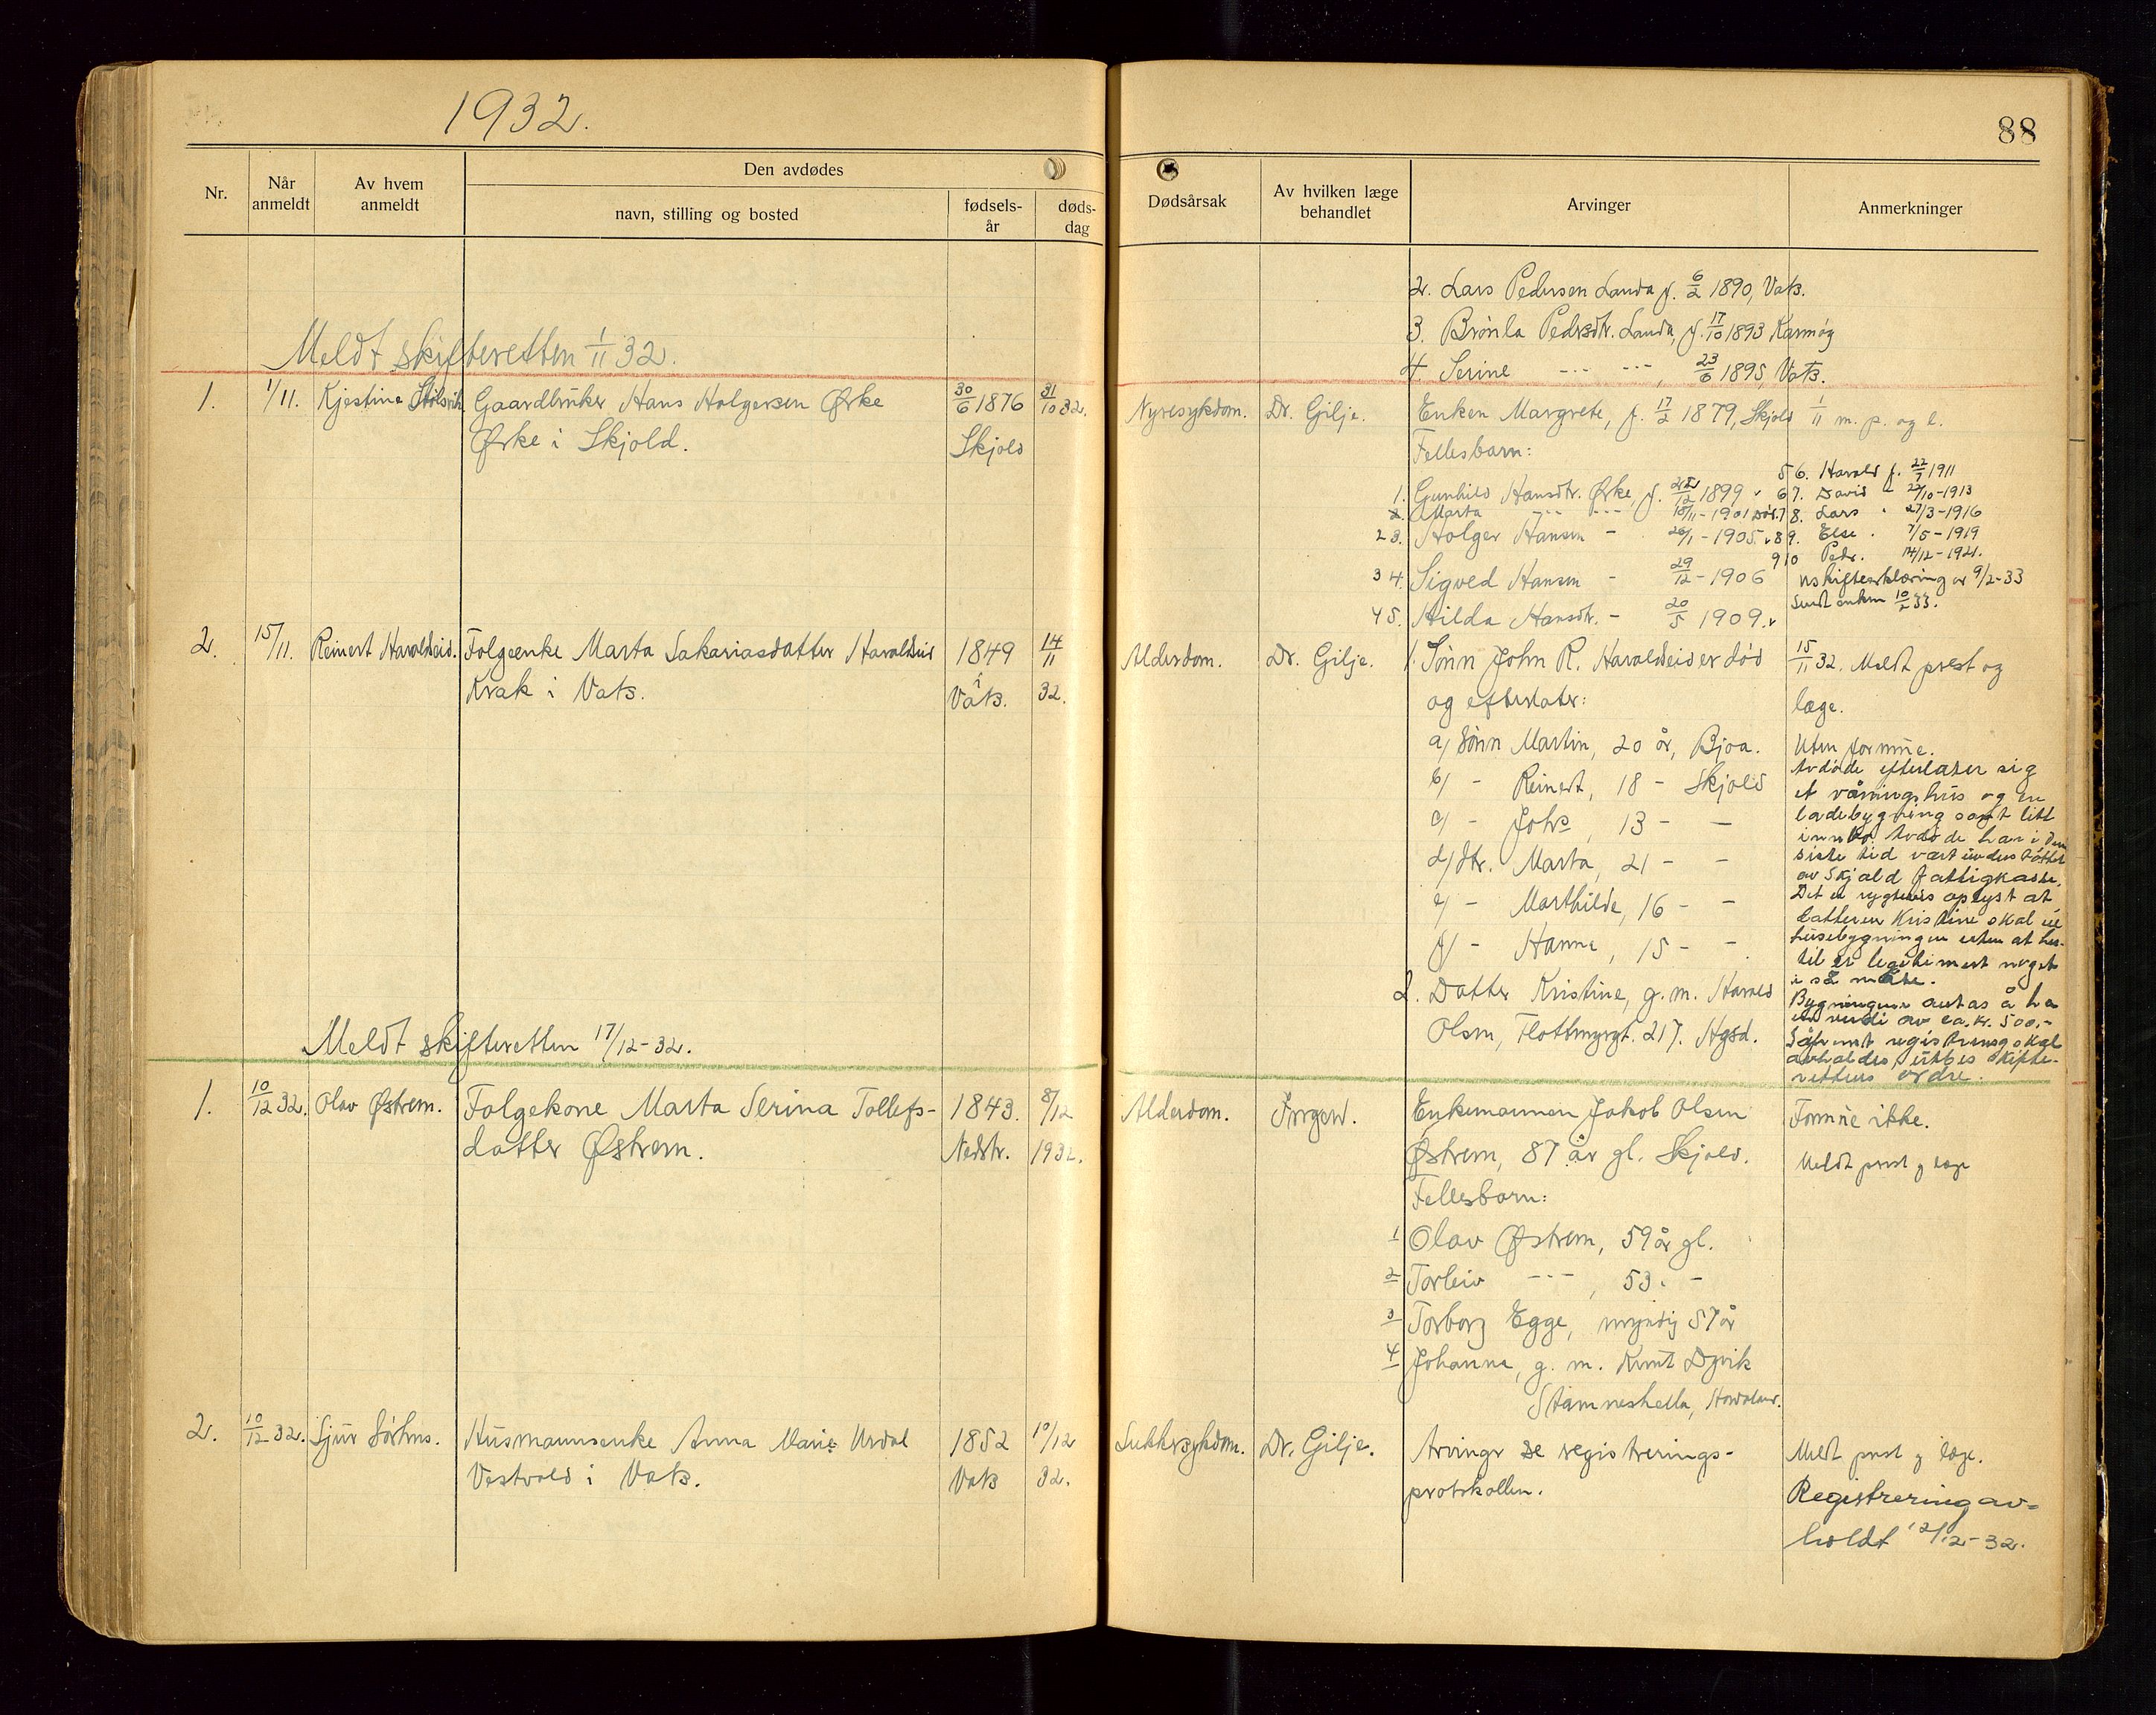 1932.
88
Nr.
Når anmeldt
Av hvem anmeldt
Den avdødes
navn, stilling og bosted
fødsels-år
døds-dag
Dødsårsak
Av hvilken læge behandlet
Arvinger
Anmerkninger
2. Lars Pedersen Landa f. 6/2 1890, Vats.
3. Brønla Pedrsdtr. Landa, f. 17/10 1893 Karmøy
4. Serine --- ---, 23/6 1895, Vats.
Meldt skifteretten 1/11 32.
1. 1/11. Kjestine Gaardbruker Hans Holgersen Ørke 30/6 1876 31/10 32.
Ørke i Skjold. Skjold
Nyresykdom. Dr. Gilje. Enken Margrete, f. 17/2 1879, Skjold 1/11 m. p. og l.
Fellesbarn:
1. Gunhild Hansdtr. Ørke, f. 1899
2. Marta --- --- 18/11 - 1901 død.
2 3. Holger Hansen - 26/1 - 1905.
3 4. Sigved Hansen - 29/12 - 1906
4 5. Hilda Hansdtr. - 20/5 1909.
5 6. Harald f. 22/7 1911
6 7. David - 22/10 - 1913
7 8. Lars " 27/3 - 1916
8 9. Else . 7/5 - 1919
9 10 Pedr. 14/12 - 1921.
uskifteerklæring av 9/2-33
Sendt enken 10/2 33.
2. 15/11. Reinert Haraldseid. Folgeenke Marta Sakariasdatter Haraldseid 1849 14/11
Krak i Vats. i Vats. 32.
Alderdom. Dr. Gilje. 1. Sønn John R. Haraldseid er død
og efterlater:
a/ Sønn Martin, 20 år, Bjoa.
b/ - Reinert, 18 - Skjold
c/ - Johs, 13 - -
d/ dtr. Marta, 21 - -
e/ - Marthilde, 16 - -
f/ - Hanna, 15 - -.
2. Datter Kristine, g. m. Harald
Olsen, Flottmyrgt. 217. Hgsd.
15/11 32. Meldt prest og
læge.
Uten formue.
Avdøde efterlater sig
et våningshus og en
ladebygning samt litt
innbo. Avdøde har i den
siste tid vært understøttet
av Skjold fattigkasse.
Det er rygtevis oplyst at
datteren Kristine skal eie
husebygningen uten at hun
til er legitimert noget
i så måte.
Bygningene antas å ha
en verdi av ca. kr. 500,-
Såfremt registrering skal
avholdes, utbes skifte-
rettens ordre.
Meldt skifteretten 17/12-32.
1. 10/12 32. Olav Østrem. Folgekone Marta Serina Tollefs- 1843. 8/12
datter Østrem. Nedstr. 1932.
Alderdom. Ingen. Enkemannen Jakob Olsen
Østrem, 87 år gl. Skjold.
Fellesbarn:
1 Olav Østrem, 59 år gl.
2 Torleiv ---, 53. -
3 Torborg Egge, myndig 57 år
4 Johanna, g. m. Knut Dyvik
Stamneshella, Hordaland.
Formue ikke.
Meldt prest og læge
2. 10/12 32. Sjur Sørhus. Husmannsenke Anna Marie Urdal 1852 10/12
Vestvold i Vats. Vats 32.
Sukkersykdom. Dr. Gilje. Arvinger se registrerings-
protokollen.
Meldt prest og læge.
Registrering av-
holdt 12/12-32.